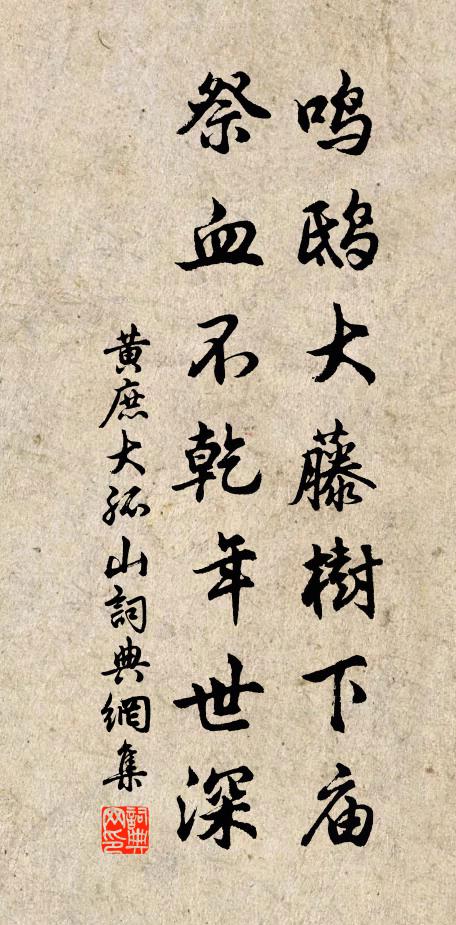 鸣鸱大藤樹下庙
祭血不乾年世深
黄庶大孤山詞典網集
詞典
网印